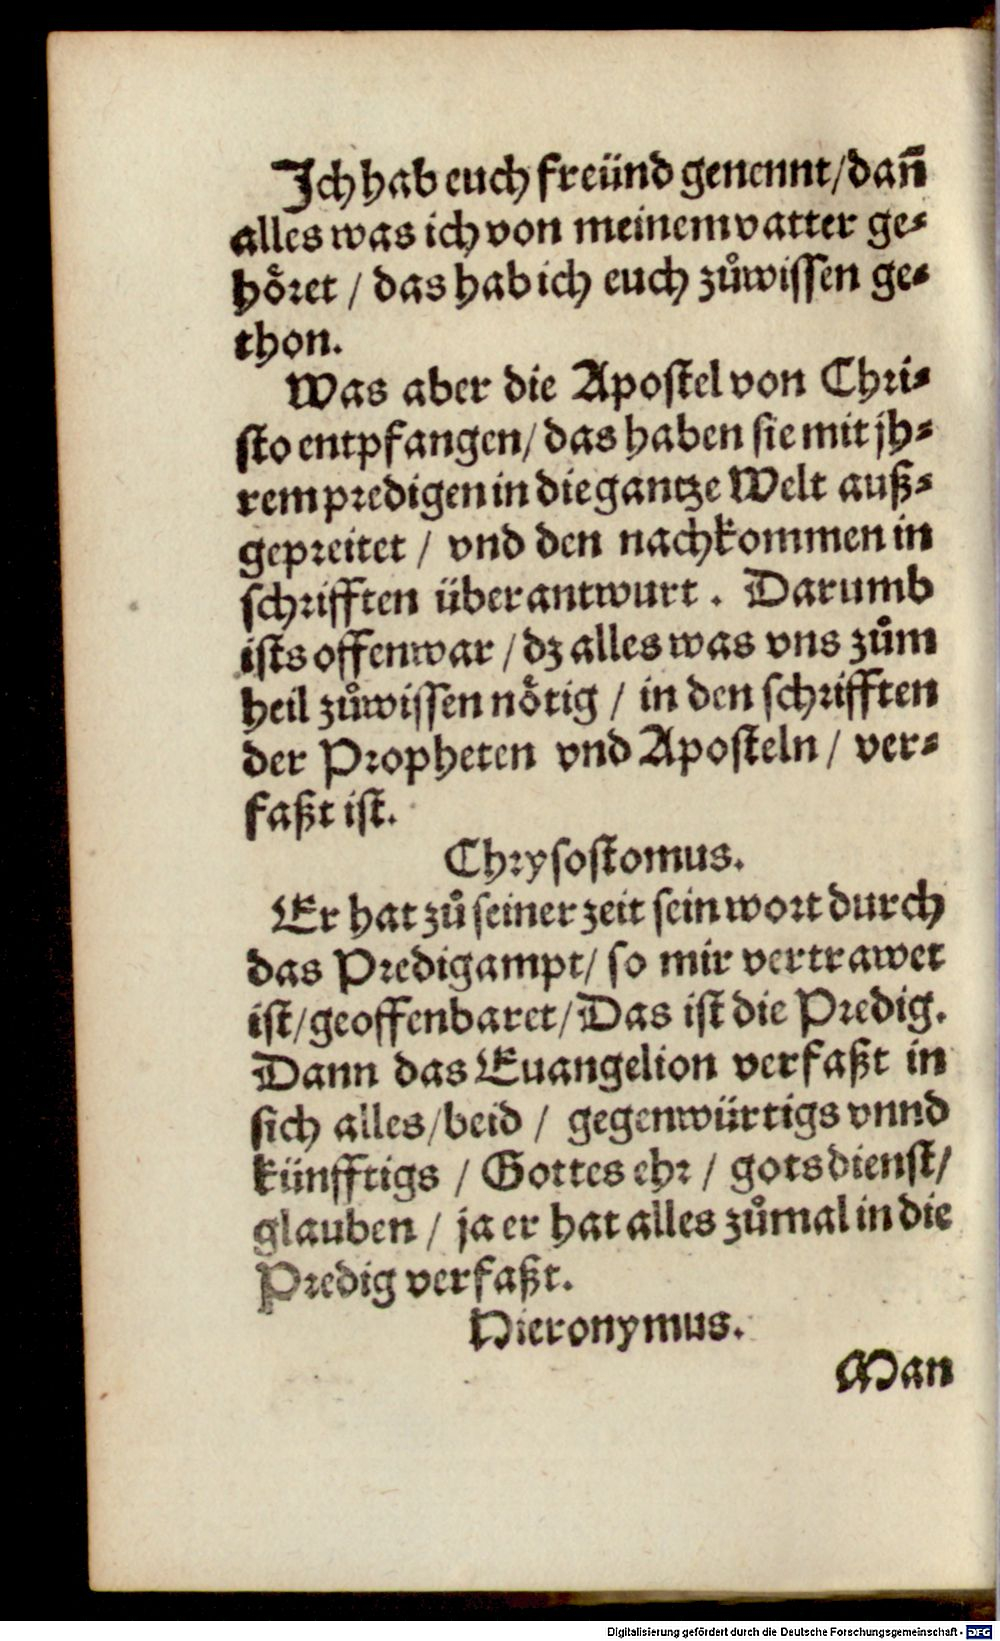 Ich hab euch freünd genennt/ dañ
alles was ich von meinem vatter ge⸗
hoͤret / das hab ich euch zůwissen ge⸗
thon.
Was aber die Apostel von Chri⸗
sto entpfangen/ das haben sie mit jh⸗
rem predigen in die gantze Welt auß⸗
gepreitet / vnd den nachkommen in
schrifften überantwurt. Darumb
ists offenwar / dz alles was vns zům
heil zůwissen noͤtig / in den schrifften
der Propheten vnd Aposteln / ver⸗
faßt ist.
Chrysostomus.
Er hat zů seiner zeit sein wort durch
das Predigampt/ so mir vertrawet
ist/ geoffenbaret/ Das ist die Predig.
Dann das Euangelion verfaßt in
sich alles/ beid / gegenwürtigs vnnd
künfftigs / Gottes ehr / gots dienst/
glauben / ja er hat alles zůmal in die
Predig verfaßt.
Hieronymus.
Man
Digitalisierung gefördert durch die Deutsche Forschungsgemeinschaft - DFG